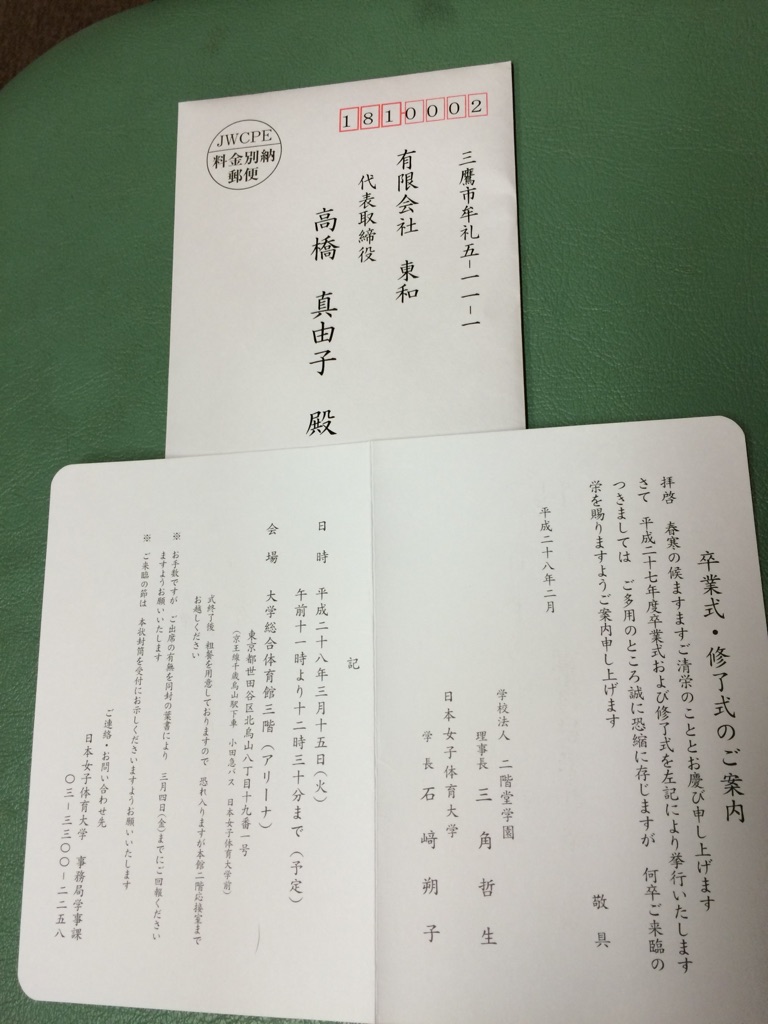 JWCPE
料金別納
郵便
1810002
三鷹市牟礼五−一一−一
有限会社 東和
代表取締役
高橋 真由子 殿
卒業式・修了式のご案内
拝啓 春寒の候ますますご清栄のこととお慶び申し上げます
さて 平成二十七年度卒業式および修了式を左記により挙行いたします
つきましては ご多用のところ誠に恐縮に存じますが 何卒ご来臨の
栄を賜りますようご案内申し上げます
敬具
平成二十八年二月
学校法人 二階堂学園
理事長 三角哲生
日本女子体育大学
学長 石﨑朔子
記
日時 平成二十八年三月十五日(火)
午前十一時より十二時三十分まで(予定)
会場 大学総合体育館三階(アリーナ)
東京都世田谷区北烏山八丁目十九番一号
(京王線千歳烏山駅下車 小田急バス 日本女子体育大学前)
式終了後 粗餐を用意しておりますので 恐れ入りますが本館二階応接室まで
お越しください
※ お手数ですが ご出席の有無を同封の葉書により 三月四日(金)までにご回報ください
ますようお願いいたします
※ ご来臨の節は 本状封筒を受付にお示しくださいますようお願いいたします
ご連絡・お問い合わせ先
日本女子体育大学 事務局学事課
〇三−三三〇〇−二二五八